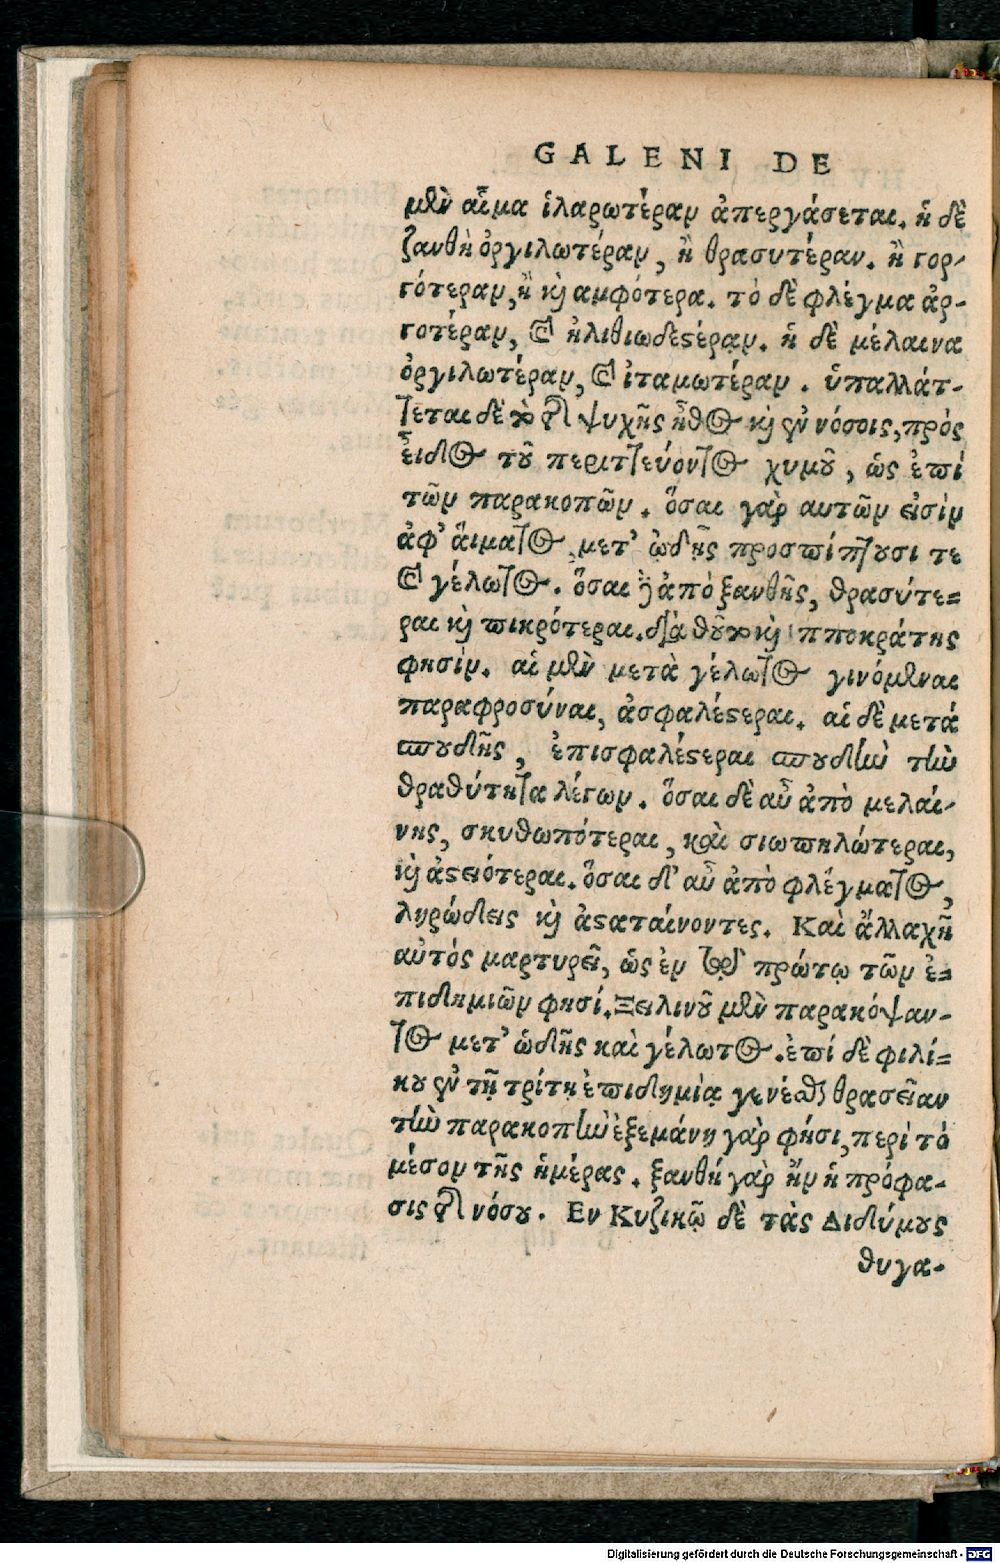 GALENI DE
μὲν αἷμα ἱλαρωτέραν ἀπεργάσεται. ἡ δὲ
ξανθὴ ὀργιλωτέραν, ἢ θρασυτέραν. ἢ γορ-
γότεραν, ἢ καὶ αμφότερα. τὸ δὲ φλέγμα ἀρ-
γοτέραν, καὶ ἠλιθιωδεστέραν. ἡ δὲ μέλαινα
ὀργιλωτέραν, καὶ ἰταμωτέραν. ὑπαλλάτ-
τεται δὲ τὸ τῆς ψυχῆς ἦθος καὶ ἐν νόσοις, πρὸς
εἶδος τοῦ περιττεύοντος χυμοῦ, ὡς ἐπί
τῶν παρακοπῶν. ὅσαι γὰρ αυτῶν εἰσὶν
ἀφ' ἅιματος, μετ' ᾠδῆς προσπίπτουσι τε
καὶ γέλωτος. ὅσαι δὲ ἀπὸ ξανθῆς, θρασύτε=
ραι καὶ πικρότεραι. διὰ τοῦτο καὶ ἱπποκράτης
φησὶν. αἱ μὲν μετὰ γέλωτος γινόμεναι
παραφροσύναι, ἀσφαλέστεραι. αἱ δὲ μετά
σπουδῆς, ἐπισφαλέστεραι σπουδὴν τὴν
θραθύτητα λέγων. ὅσαι δὲ αὖ ἀπὸ μελαί-
νης, σκυθωπότεραι, καὶ σιωπηλώτεραι,
καὶ ἀστειότεραι. ὅσαι δ' αὖ ἀπὸ φλέγματος,
ληρώδεις καὶ ἀσταταίνοντες. Καὶ ἄλλαχῆ
αὐτὸς μαρτυρεῖ, ὡς ἐν τῷ πρώτῳ τῶν ἐ=
πιδημιῶν φησί. Ξειλινοῦ μὲν παρακόψαν-
τος μετ' ὠδῆς καὶ γέλωτος. ἐπί δὲ φιλί=
κου ἐν τῇ τρίτῃ ἐπιδημίᾳ γενέσθαι θρασεῖαν
τὴν παρακοπὴν ἐξεμάνη γὰρ φήσι, περὶ τὸ
μέσον τῆς ἡμέρας. ξανθή γὰρ ἦν ἡ πρόφα-
σις τῆς νόσου. Εν Κυζικῷ δὲ τὰς Διδύμους
θυγα-
Digitalisierung gefördert durch die Deutsche Forschungsgemeinschaft - DFG